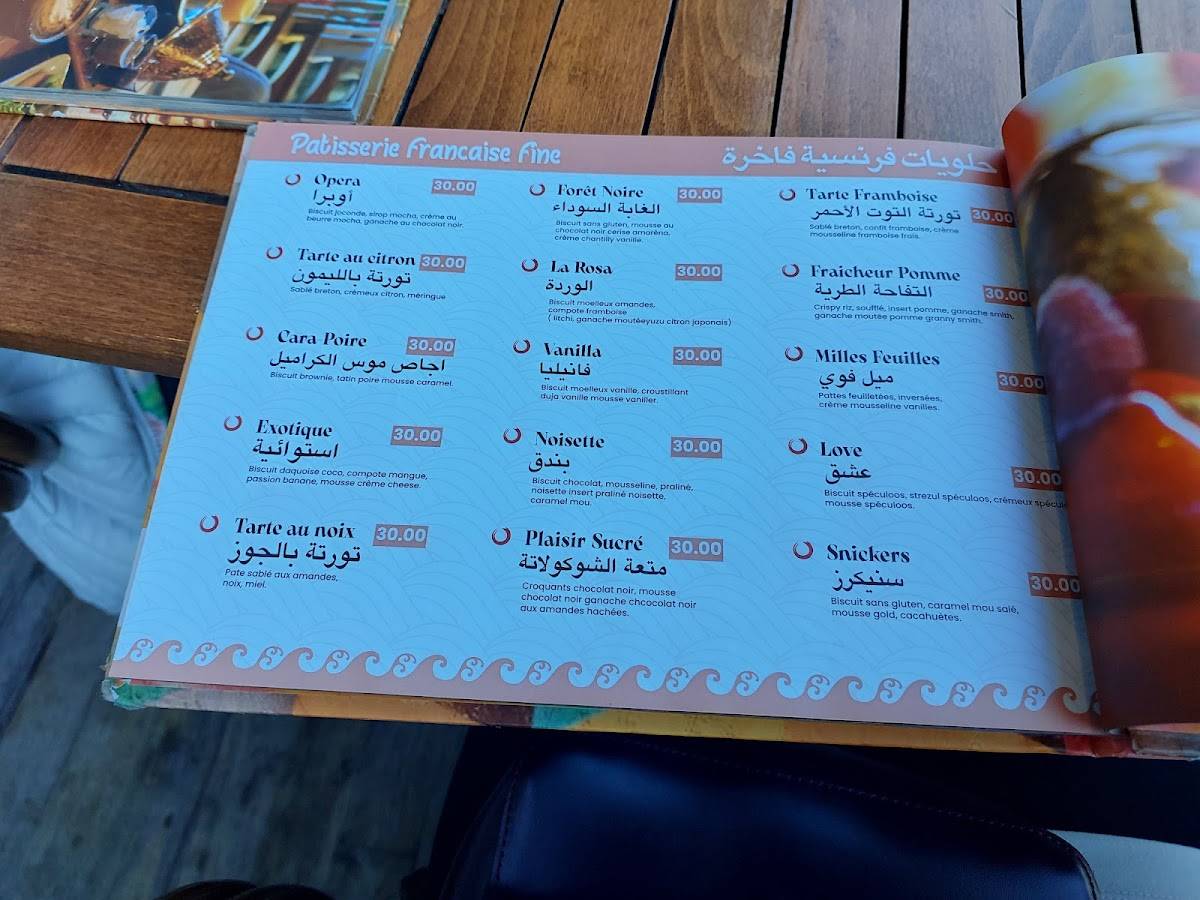 Patisserie Francaise Fine
حلويات فرنسية فاخرة
Opera 30.00
أوبرا
Biscuit joconde, sirop mocha, crème au
beurre mocha, ganache au chocolat noir.
Tarte au citron 30.00
تورتة بالليمون
Sablé breton, crémeux citron, méringue
Cara-Poire 30.00
اجاص موس الكراميل
Biscuit brownie, tatin poire mousse caramel.
Exotique 30.00
استوائية
Biscuit daquoise coco, compote mangue,
passion banane, mousse crème cheese.
Tarte au noix 30.00
تورتة بالجوز
Pate sablé aux amandes,
noix, miel.
Forêt Noire 30.00
الغابة السوداء
Biscuit sans gluten, mousse au
chocolat noir cerise amaréna,
crème chantilly vanille.
La Rosa 30.00
الوردة
Biscuit moelleux amandes,
compote framboise
( litchi, ganache moutéeyuzu citron japonais)
Vanilla 30.00
فانيليا
Biscuit moelleux vanille, croustillant
duja vanille mousse vaniller.
Noisette 30.00
بندق
Biscuit chocolat, mousseline, praliné,
noisette insert praliné noisette,
caramel mou.
Plaisir Sucré 30.00
متعة الشوكولاتة
Croquants chocolat noir, mousse
chocolat noir ganache chcocolat noir
aux amandes hachées.
Tarte Framboise
تورتة التوت الأحمر 30.00
Sablé breton, confit framboise, crème
mousseline framboise frais.
Fraicheur Pomme
التفاحة الطرية 30.00
Crispy riz, soufflé, insert pomme, ganache smith,
ganache moutée pomme granny smith.
Milles Feuilles
ميل فوي 30.00
Pattes feuilletées, inversées,
crème mousseline vanilles.
Love
عشق 30.00
Biscuit spéculoos, strezul spéculoos, crémeux spécul
mousse spéculoos.
Snickers
سنيكرز 30.00
Biscuit sans gluten, caramel mou salé,
mousse gold, cacahuètes.